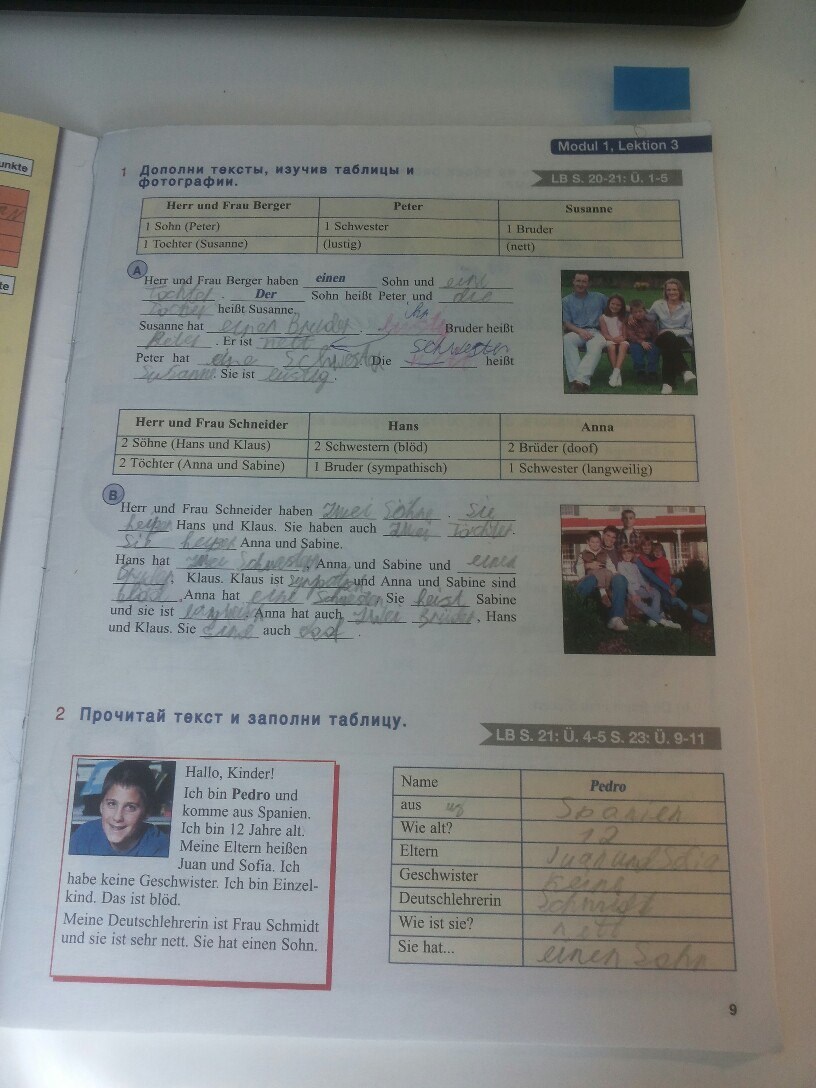 unkte
te
Modul 1, Lektion 3
1 Дополни тексты, изучив таблицы и
фотографии.
LB S. 20-21: Ü. 1-5
Herr und Frau Berger Peter Susanne
1 Sohn (Peter) 1 Schwester 1 Bruder
1 Tochter (Susanne) (lustig) (nett)
A
Herr und Frau Berger haben einen Sohn und eine
Tochter. Der Sohn heißt Peter und die
heißt Susanne.
Susanne hat einen Bruder. Ihr Bruder heißt
Peter. Er ist nett
Peter hat eine Schwester. Die Schwester heißt
Susanne. Sie ist lustig.
Herr und Frau Schneider Hans Anna
2 Söhne (Hans und Klaus) 2 Schwestern (blöd) 2 Brüder (doof)
2 Töchter (Anna und Sabine) 1 Bruder (sympathisch) 1 Schwester (langweilig)
B
Herr und Frau Schneider haben zwei Söhne. Sie
Hans und Klaus. Sie haben auch zwei Töchter.
Sie Anna und Sabine.
Hans hat zwei Schwestern, Anna und Sabine und einen
Bruder, Klaus. Klaus ist und Anna und Sabine sind
blöd. Anna hat eine Schwester. Sie Sabine
und sie ist . Anna hat auch zwei Brüder, Hans
und Klaus. Sie auch .
2 Прочитай текст и заполни таблицу.
LB S. 21: Ü. 4-5 S. 23: Ü. 9-11
Hallo, Kinder!
Ich bin Pedro und
komme aus Spanien.
Ich bin 12 Jahre alt.
Meine Eltern heißen
Juan und Sofia. Ich
habe keine Geschwister. Ich bin Einzel-
kind. Das ist blöd.
Meine Deutschlehrerin ist Frau Schmidt
und sie ist sehr nett. Sie hat einen Sohn.
Name Pedro
aus из Spanien
Wie alt? 12
Eltern Juan und Sofia
Geschwister keine
Deutschlehrerin Schmidt
Wie ist sie? nett
Sie hat... einen Sohn
9